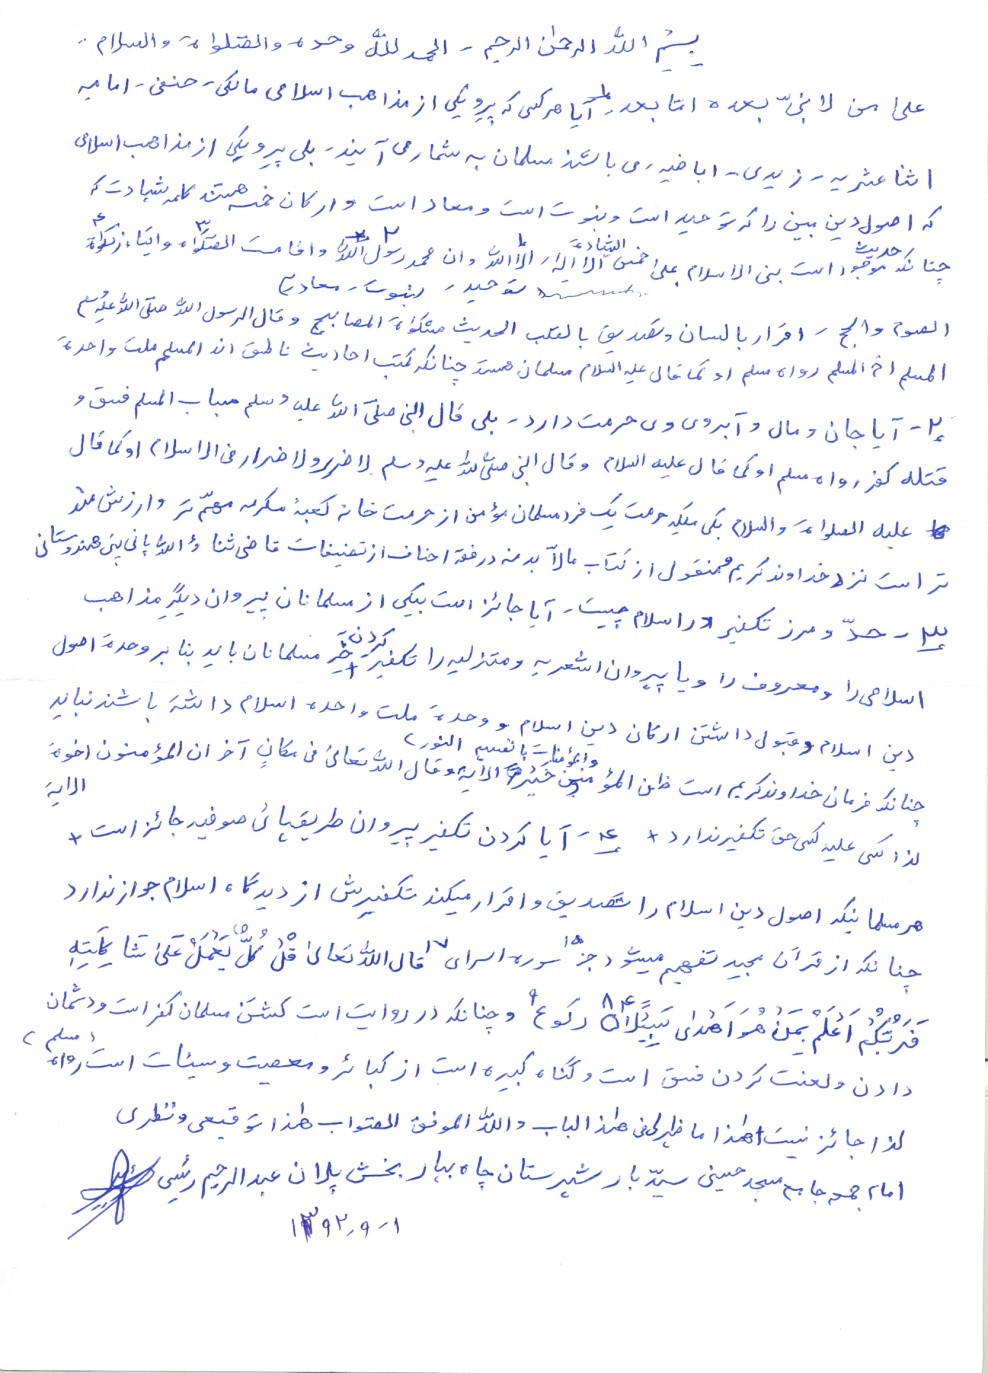 بسم الله الرحمٰن الرحیم - الحمد لله وحده والصّلواة والسلام -
علیٰ من لا نبیّ بعده امّا بعد ۱- آیا هرکس که پیرو یکی از مذاهب اسلامی مالکی - حنفی - امامیه
اثنا عشریه - زیدی - اباضیه - می باشند مسلمان به شمار می آیند - بلی پیرو یکی از مذاهب اسلامی
که اصول دین مبین را که توحید است و نبوت است و معاد است و ارکان خمسه هستند کلمه شهادت که
چنانکه حدیث موجود است بنی الاسلام علیٰ خمس الشهادة ۱ الا اله الّا الله و ان محمد رسول الله ۲ و اقامت الصّلواة ۳ و ایتاء زکواة ۴
توحید - نبوت - معاد
الصوم والحج - اقرار باللسان و تصدیق بالقلب الحدیث مشکواة المصابیح و قال الرسول الله صلّی الله علیه وسلم
المسلم اخ المسلم رواه مسلم او کما قال علیه السلام مسلمان هستند چنانکه کتب احادیث ناطق اند المسلم ملت واحدة
۲- آیا جان و مال و آبروی وی حرمت دارد - بلی قال النبی صلّی الله علیه وسلم سباب المسلم فسق و
قتله کفر رواه مسلم او کما قال علیه السلام و قال النبی صلی الله علیه وسلم لا ضرر ولا ضرار فی الاسلام او کما قال
علیه الصلواة والسلام بلی میکه حرمت یک فرد مسلمان مؤمن از حرمت خانه کعبهٔ مکرمه مهمّ تر و ارزش مند
تر است نزد خداوند کریم منقول از کتاب مالا بد منه در فقه احناف از تصنیفات قاضی ثناءالله پانی پتی هندوستانی
۳- حدّ و مرز تکفیر در اسلام چیست - آیا جائز است یکی از مسلمانان پیروان دیگر مذاهب
اسلامی را و معروف را و یا پیروان اشعریه و متزلیه را تکفیر کردن خیر مسلمانان باید بنا بر وحدة اصول
دین اسلام و قبول داشتن ارکان دین اسلام و وحدة ملت واحده اسلام داشته باشند نباید
چنانکه فرمان خداوند کریم است ظن المؤمنون والمؤمنات بانفسهم خیرا النور الآیه و قال الله تعالیٰ فی مکان آخر ان المؤمنون اخوة الآیة
لذا کسی علیه کسی حق تکفیر ندارد + ۴- آیا کردن تکفیر پیروان طریقهای صوفیه جائز است +
هر مسلمانیکه اصول دین اسلام را تصدیق و اقرار میکند تکفیرش از دیدگاه اسلام جواز ندارد
چنانکه از قرآن مجید تفهیم میشود جز ۱۵ سوره اسرای ۱۷ قال الله تعالیٰ قُلْ کُلٌّ یَعْمَلُ عَلیٰ شَاکِلَتِهِ
فَرَبُّکُمْ اَعْلَمُ بِمَنْ هُوَ اَهْدیٰ سَبِیْلًا ۸۴ رکوع ۹ و چنانکه در روایت است کشتن مسلمان کفر است و دشمان
دادن و لعنت کردن فسق است و گناه کبیره است از کبائر و معصیت و سیئات است رواه (مسلم)
لذا جائز نیست هٰذا ما ظهر لی فی هٰذا الباب والله الموفق للصّواب هٰذا توقیعی و نظری
امام جمعه جامع مسجد حسینی سیّد بار شهرستان چاه بهار بخش پلان عبدالرحیم رئیسی
۱-۹-۱۳۹۲